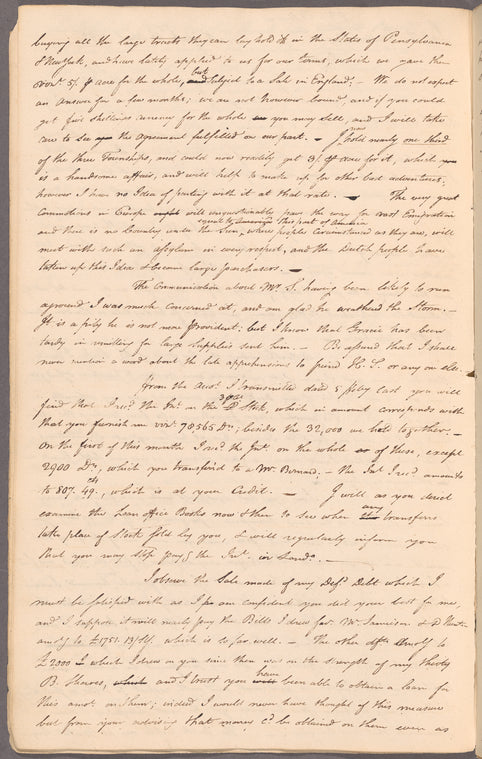 buying all the large tracts they can lay hold of in the States of Pensylvania
& New York, and have lately applied to us for our Terms, which we gave them
5/. ⅌ acre for the whole, but Subject to a Sale in England. — We do not expect
an answer for a few months; we are not however bound, and if you could
get five shillings currency for the whole you may sell, and I will take
care to see the agreement fulfilled on our part. — I now hold nearly one third
of the three Townships, and could now readily get 3/. ⅌ acre for it, which
is a handsome affair, and will help to make up for other bad adventures;
however I have no Idea of parting with it at that rate. — The very great
Commotions in Europe will unquestionably pave the way for vast Emigration
equal to America this part of
and there is no Country under the Sun, where people Circumstanced as they are, will
meet with such an Asylum in every respect, and the Dutch people have
taken up this Idea & become large purchasers. —
The Communication about Mr. S. having been likely to run
aground I was much concerned at, and am glad he weatherd the Storm. —
It is a pity he is not more Provident, but I know that Gracie has been
tardy in remitting for large Supplies sent him. — Be assured that I shall
never mention a word about the late apprehensions to friend H. S. or any one else.
From the Accot. I transmitted dated 5 feby last you will
find that I recd. the Int. on the 3 ⅌Ct. Stock, which in amount corresponds with
that you furnish me vizt. 70,565 Drs., besides the 32,000 we hold together. —
On the first of this month I recd. the Int. on the whole of these, except
2900 Drs., which you transferd to a Mr. Bernard. — the Int. I recd. amounts
to 807. 49 cts., which is at your Credit. — I will as you direct
examine the Loan Office Books now & then to see when any transfers
take place of Stock sold by you, & will regularly inform you
that you may stop payg. the Int. in Londo. —
I observe the Sale made of my Defd. Debt which I
must be satisfied with as I am confident you did your best for me,
and I suppose it will nearly pay the Bills I drew for. Mr. Jamieson & D
amotg. to £1751. 13/ Stg. which is so far well. — The other Drfts Amotg. to
£2000 which I drew on you since then was on the strength of my thirty
B. Shares, and I trust you have been able to obtain a loan for
this amot. on them; indeed I would never have thought of this measure
but from your advising that money cd. be obtained on them even as